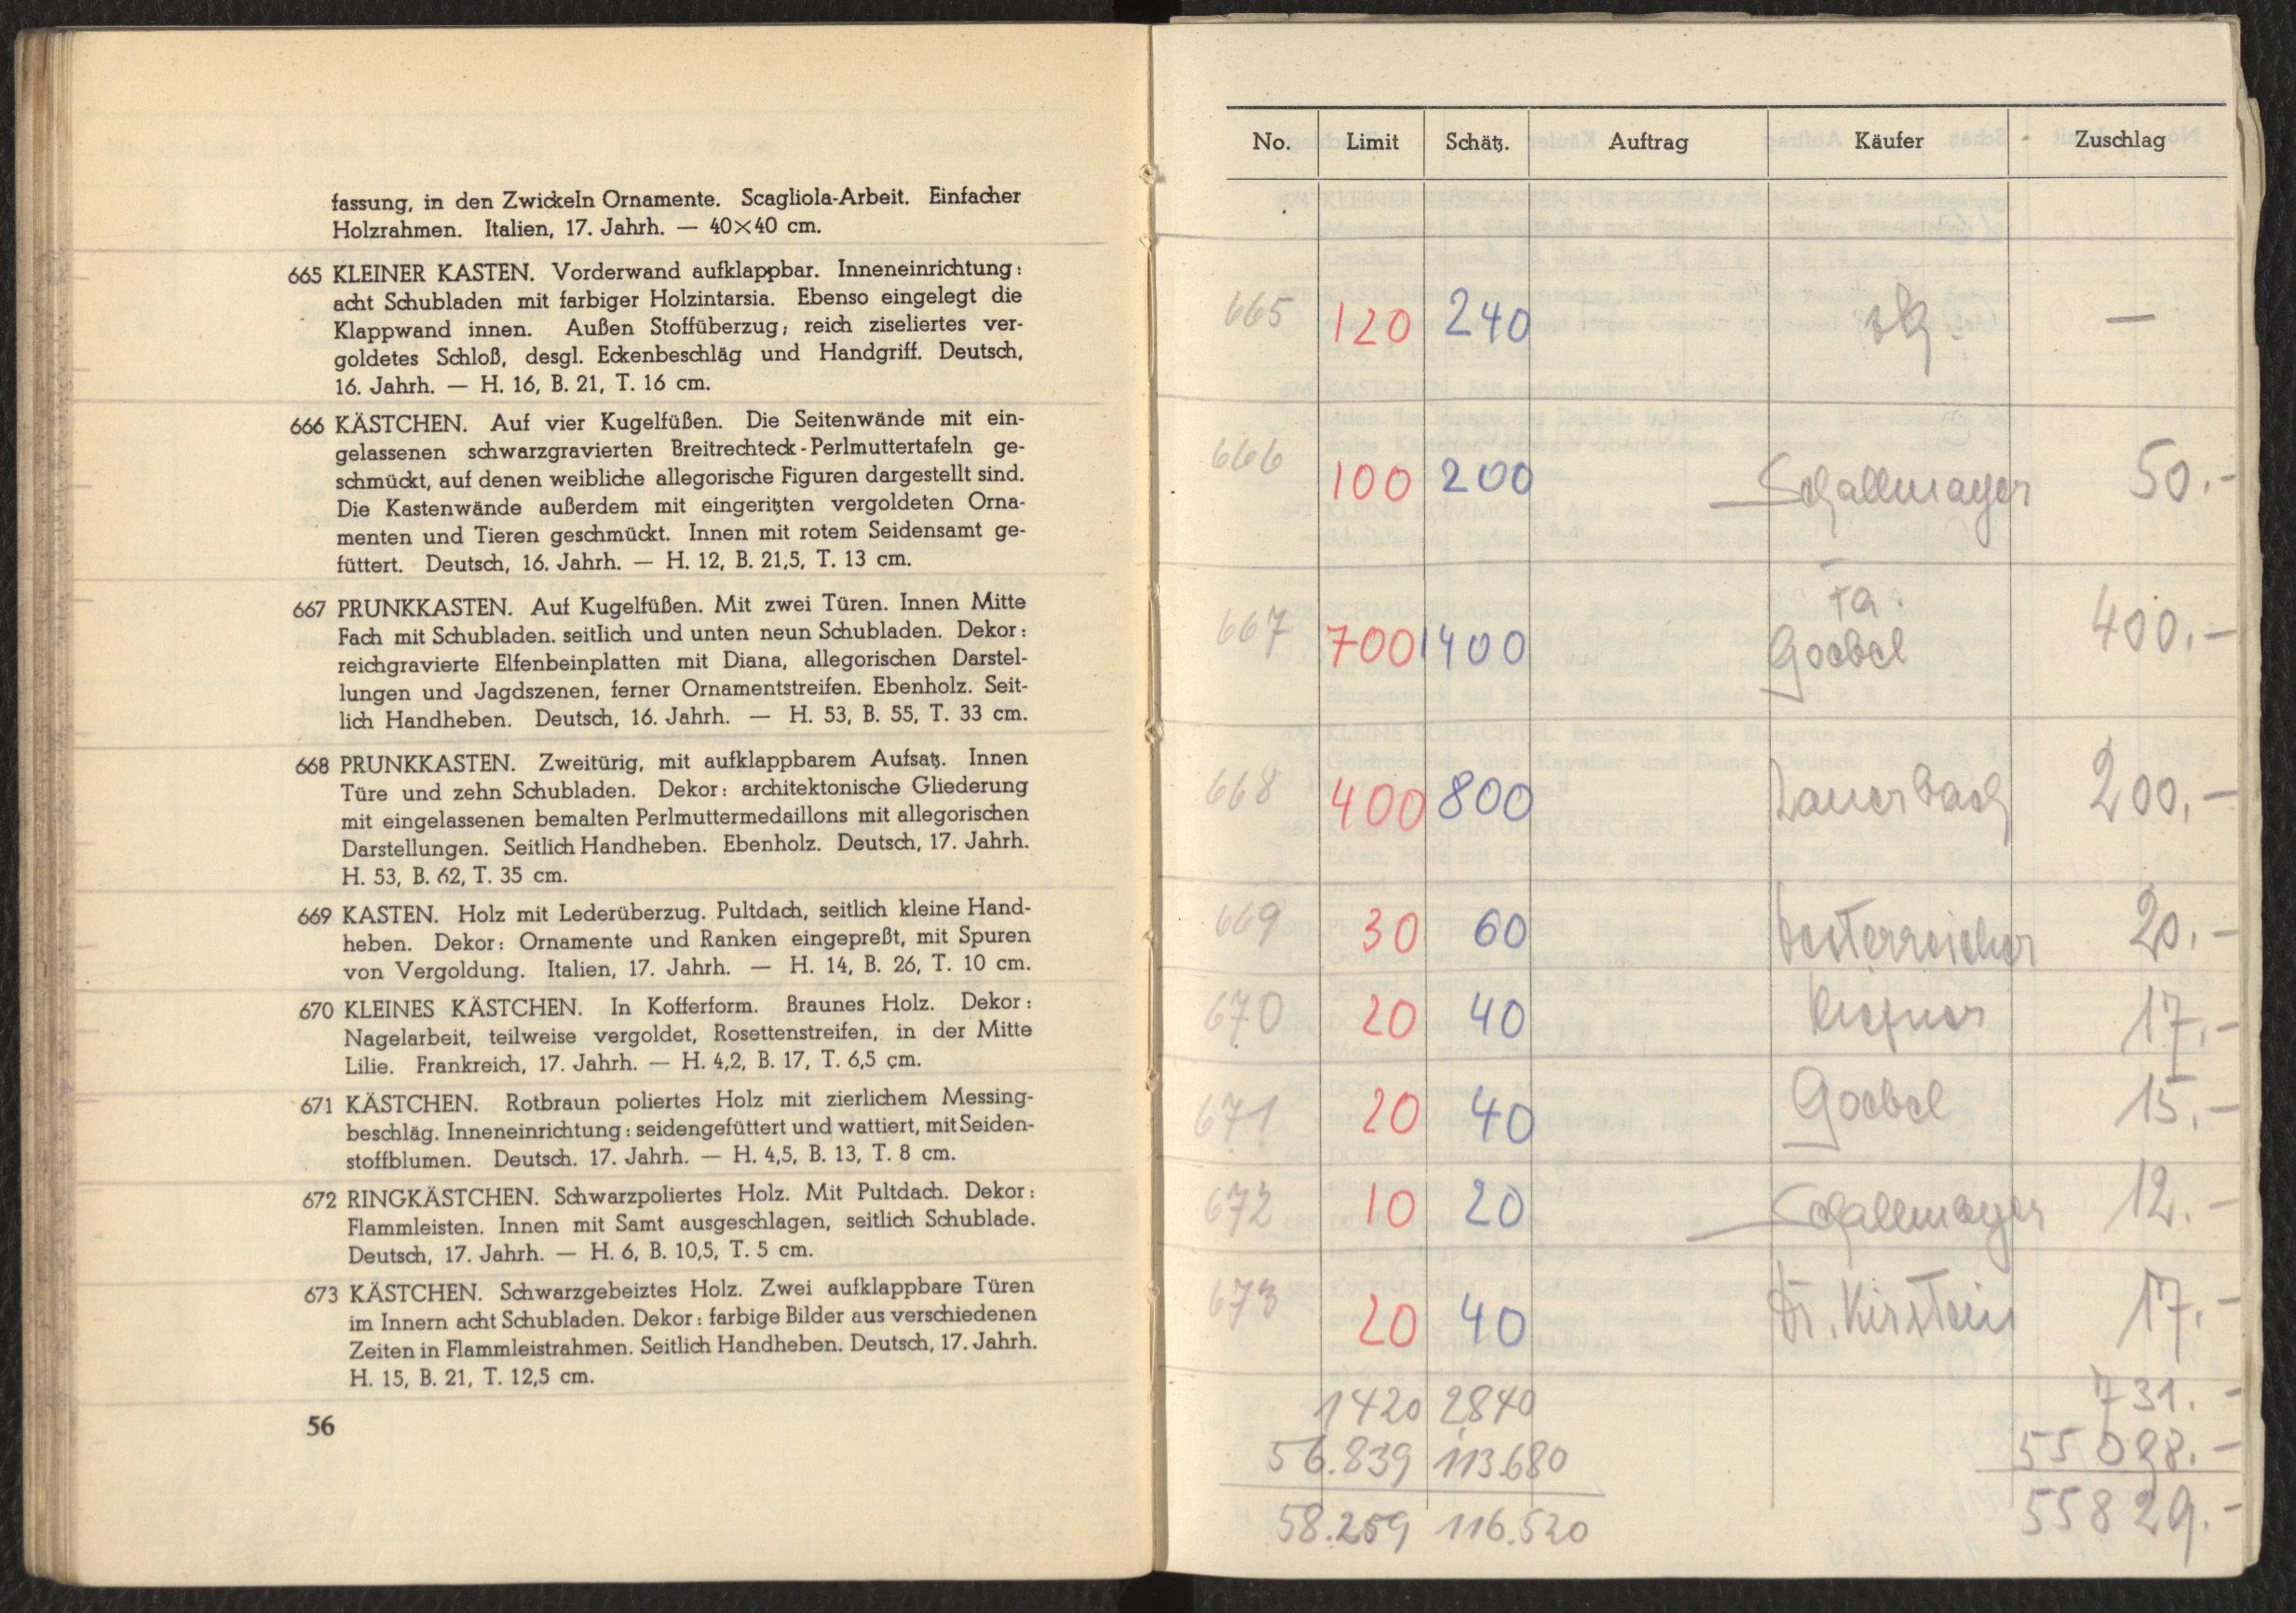 fassung, in den Zwickeln Ornamente. Scagliola-Arbeit. Einfacher
Holzrahmen. Italien, 17. Jahrh. — 40×40 cm.
665 KLEINER KASTEN. Vorderwand aufklappbar. Inneneinrichtung:
acht Schubladen mit farbiger Holzintarsia. Ebenso eingelegt die
Klappwand innen. Außen Stoffüberzug; reich ziseliertes ver-
goldetes Schloß, desgl. Eckenbeschläg und Handgriff. Deutsch,
16. Jahrh. — H. 16, B. 21, T. 16 cm.
666 KÄSTCHEN. Auf vier Kugelfüßen. Die Seitenwände mit ein-
gelassenen schwarzgravierten Breitrechteck-Perlmuttertafeln ge-
schmückt, auf denen weibliche allegorische Figuren dargestellt sind.
Die Kastenwände außerdem mit eingeritzten vergoldeten Orna-
menten und Tieren geschmückt. Innen mit rotem Seidensamt ge-
füttert. Deutsch, 16. Jahrh. — H. 12, B. 21,5, T. 13 cm.
667 PRUNKKASTEN. Auf Kugelfüßen. Mit zwei Türen. Innen Mitte
Fach mit Schubladen. seitlich und unten neun Schubladen. Dekor:
reichgravierte Elfenbeinplatten mit Diana, allegorischen Darstel-
lungen und Jagdszenen, ferner Ornamentstreifen. Ebenholz. Seit-
lich Handheben. Deutsch, 16. Jahrh. — H. 53, B. 55, T. 33 cm.
668 PRUNKKASTEN. Zweitürig, mit aufklappbarem Aufsatz. Innen
Türe und zehn Schubladen. Dekor: architektonische Gliederung
mit eingelassenen bemalten Perlmuttermedaillons mit allegorischen
Darstellungen. Seitlich Handheben. Ebenholz. Deutsch, 17. Jahrh.
H. 53, B. 62, T. 35 cm.
669 KASTEN. Holz mit Lederüberzug. Pultdach, seitlich kleine Hand-
heben. Dekor: Ornamente und Ranken eingepreßt, mit Spuren
von Vergoldung. Italien, 17. Jahrh. — H. 14, B. 26, T. 10 cm.
670 KLEINES KÄSTCHEN. In Kofferform. Braunes Holz. Dekor:
Nagelarbeit, teilweise vergoldet, Rosettenstreifen, in der Mitte
Lilie. Frankreich, 17. Jahrh. — H. 4,2, B. 17, T. 6,5 cm.
671 KÄSTCHEN. Rotbraun poliertes Holz mit zierlichem Messing-
beschläg. Inneneinrichtung: seidengefüttert und wattiert, mit Seiden-
stoffblumen. Deutsch. 17. Jahrh. — H. 4,5, B. 13, T. 8 cm.
672 RINGKÄSTCHEN. Schwarzpoliertes Holz. Mit Pultdach. Dekor:
Flammleisten. Innen mit Samt ausgeschlagen, seitlich Schublade.
Deutsch, 17. Jahrh. — H. 6, B. 10,5, T. 5 cm.
673 KÄSTCHEN. Schwarzgebeiztes Holz. Zwei aufklappbare Türen
im Innern acht Schubladen. Dekor: farbige Bilder aus verschiedenen
Zeiten in Flammleistrahmen. Seitlich Handheben. Deutsch, 17. Jahrh.
H. 15, B. 21, T. 12,5 cm.
56
No. Limit Schätz. Auftrag Käufer Zuschlag
665 120 240 —
666 100 200 Schallmayer 50.-
667 700 1400 Fa. Goebel 400.-
668 400 800 200.-
669 30 60 Oesterreicher 20.-
670 20 40 17.-
671 20 40 Goebel 15.-
672 10 20 Schallmayer 12.-
673 20 40 Dr. Kirstein 17.-
1420 2840 731.-
56.839 113.680 55098.-
58.259 116.520 55829.-